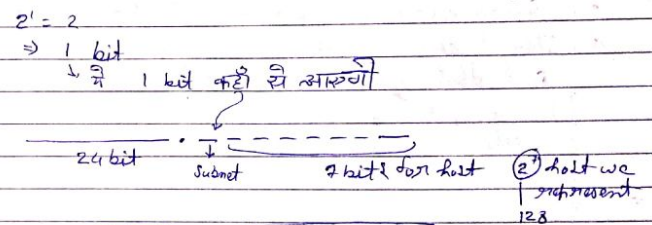 2¹ = 2
⇒ 1 bit
↳ ये 1 bit कहाँ से आएगी
24 bit . subnet 7 bits for host 2⁷ host we represent
128